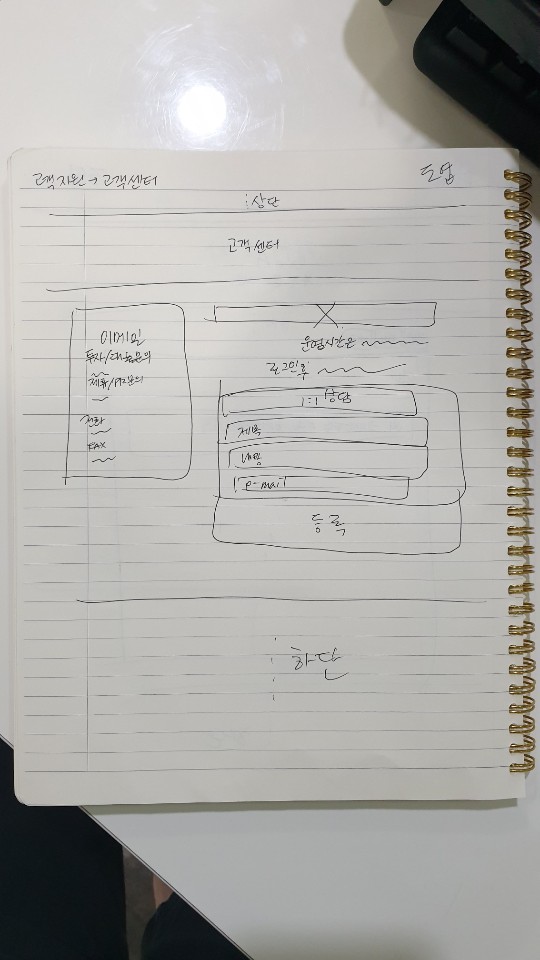 고객지원 → 고객센터
도엽
상단
고객센터
이메일
투자/대출문의
제휴/PR문의
전화
FAX
운영시간은
로그인후
1:1 상담
제목
내용
e-mail
등록
하단